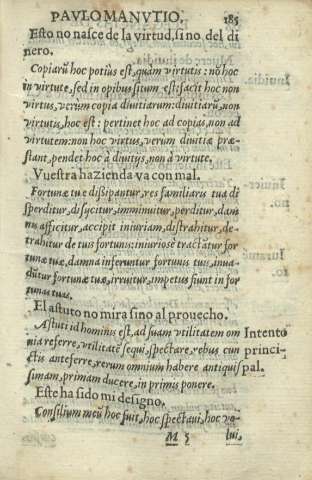 PAVLO MANVTIO. 185
Esto no nasce de la virtud, sino del di
nero.
Copiarũ hoc potiùs est, quàm virtutis : nõ hoc
in virtute, sed in opibus situm est: facit hoc non
virtus, verum copia diuitiarum: diuitiarũ, non
virtutis, hoc est : pertinet hoc ad copias, non ad
virtutem: non hoc virtus, verum diuitiæ præ-
stant, pendet hoc à diuitijs, non à virtute.
Vuestra hazienda va con mal.
Fortunæ tuæ dissipantur, res familiaris tua di
sperditur, disijcitur, imminuitur, perditur, dam
nis afficitur, accipit iniuriam, distrahitur, de-
trahitur de tuis fortunis: iniuriosè tractãtur for
tunæ tuæ, damna inferuntur fortunis tuis, inua-
dũtur fortunæ tuæ, irruitur, impetus fiunt in for
tunas tuas.
El astuto no mira sino al prouecho.
Astuti id hominis est, ad suam vtilitatem om
nia referre, vtilitatẽ sequi, spectare, rebus cun
ctis anteferre, rerum omnium habere antiquis
simam, primam ducere, in primis ponere.
Intento
princi-
pal.
Este ha sido mi designo.
Consilium meũ hoc fuit, hoc spectaui, hoc vo-
M 5 lui,